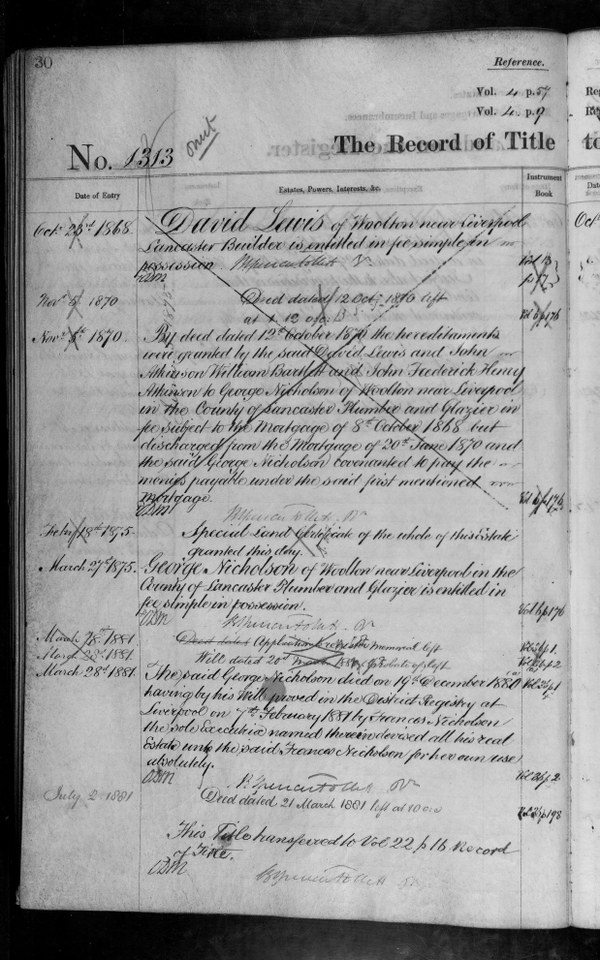 30
Reference.
Vol. 4 p. 57
Vol. 4 p. 9
The Record of Title
No. 1313
Date of Entry
Estates, Powers, Interests, &c.
Instrument
Book
Oct. 1868
David Lewis of Woolton near Liverpool
Lancaster Builder is entitled in fee simple in
possession
1870
Deed dated 12 Oct. 1870 left
at
Nov. 1870.
By deed dated 12th October 1870 the hereditaments
were granted by the said David Lewis and John
Atkinson William and John Frederick Henry
Atkinson to George Nicholson of Woolton near Liverpool
in the County of Lancaster Plumber and Glazier in
fee subject to the Mortgage of 8th October 1868 but
discharged from the Mortgage of 20th June 1870 and
the said George Nicholson covenanted to pay the
moneys payable under the said first mentioned
mortgage.
Feby 18th 1875
Special Land Certificate of the whole of this Estate
granted this day.
March 27th 1875.
George Nicholson of Woolton near Liverpool in the
County of Lancaster Plumber and Glazier is entitled in
fee simple in possession.
Vol 6 p 176
March 1881
Deed dated Application memorial left
March 28th 1881
Will dated 20th left
March 28th 1881
The said George Nicholson died on 19th December 1880
having by his Will proved in the District Registry at
Liverpool on 7th February 1881 by Frances Nicholson
the sole Executrix named therein devised all his real
Estate unto the said Frances Nicholson for her own use
absolutely.
July 2 1881
Deed dated 21 March 1881 left at 10
This Title transferred to Vol 22 p 16 Record
of Title.